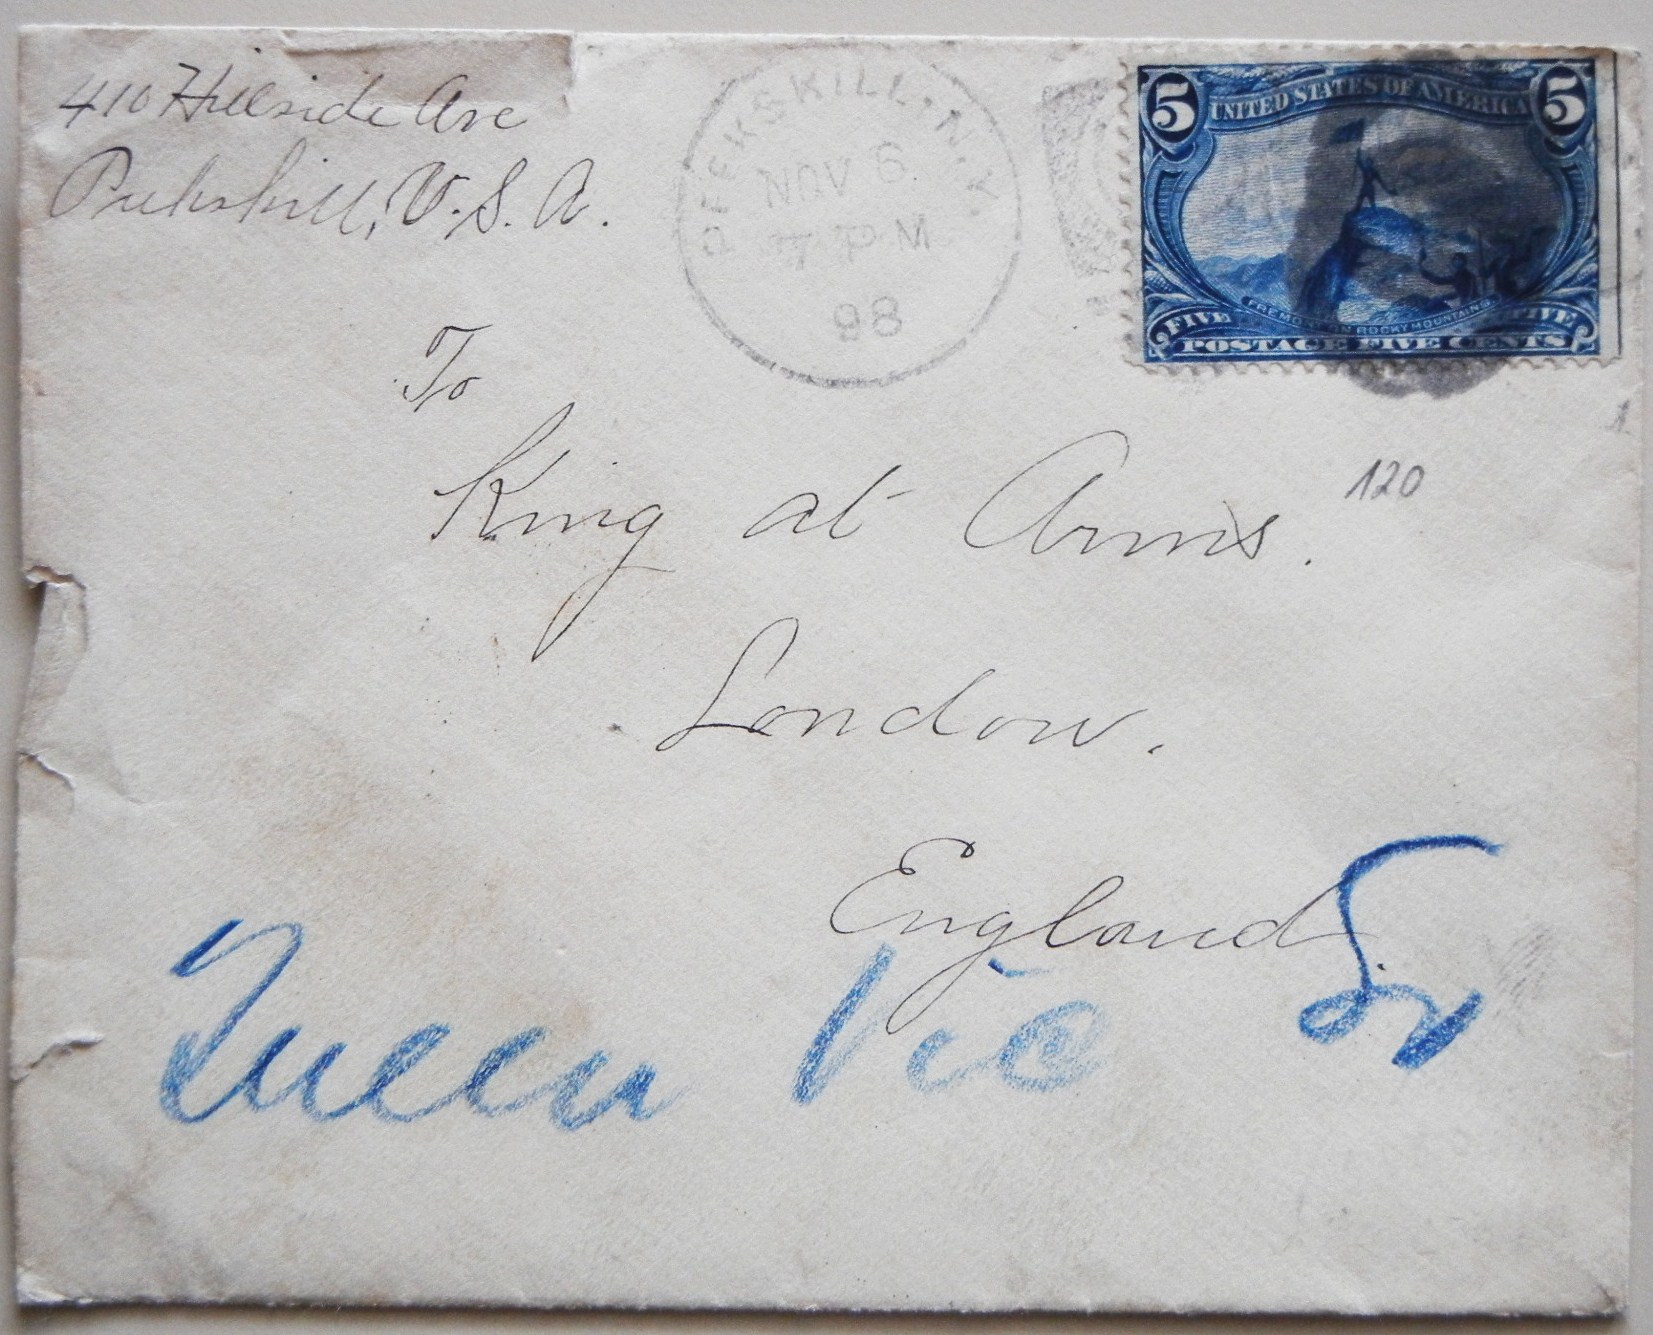 410 Hillside Ave
Peekskill, U.S.A.
PEEKSKILL, N.Y.
NOV 6
7 PM
98
5 UNITED STATES OF AMERICA 5
FREMONT ON ROCKY MOUNTAINS
FIVE FIVE
POSTAGE FIVE CENTS
To
King at Arms.
120
London.
England.
Queen Vic